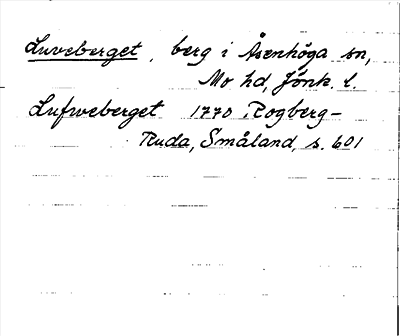 Luveberget, berg i Åsenhöga sn,
Mo hd, Jönk. l.
Lufweberget 1770. Rogberg-
Ruda, Småland, s. 601